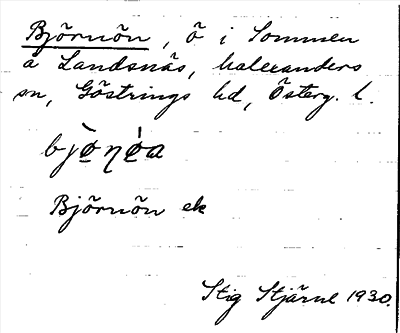 Björnön, ö i Sommen
å Landsnäs, Malexanders
sn, Göstrings hd, Österg. l.
bjö̀ŋö́a
Björnön ek
Stig Stjärne 1930.